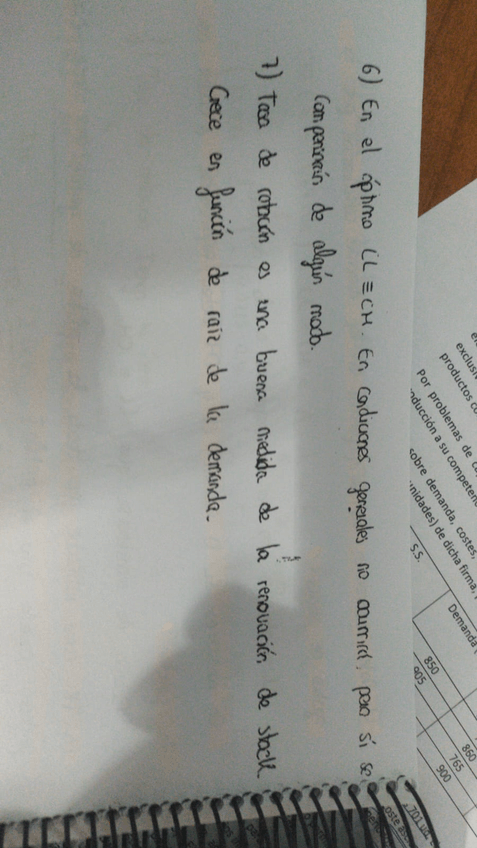 6) En el óptimo CL ≡ CH. En condiciones generales no ocurrirá, pero sí se
compensarán de algún modo.
7) Tasa de rotación es una buena medida de la renovación de stock
Crece en función de raiz de la demanda.
exclusiv
productos c
Por problemas de
oducción a su competen
sobre demanda, costes,
unidades) de dicha firma,
S.S.
Demanda
850
905
860
765
900